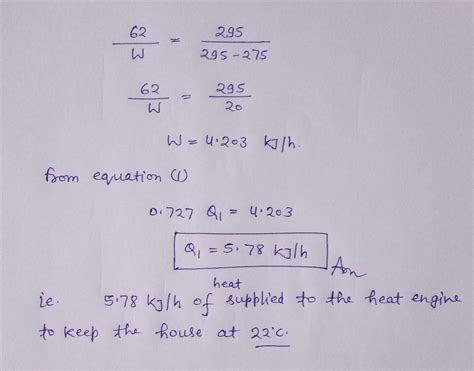 62/W = 295/295-275
62/W = 295/20
W = 4.203 kJ/h.
from equation (1)
0.727 Q1 = 4.203
Q1 = 5.78 kJ/h Ans
heat
ie. 5.78 kJ/h of supplied to the heat engine
to keep the house at 22°C.